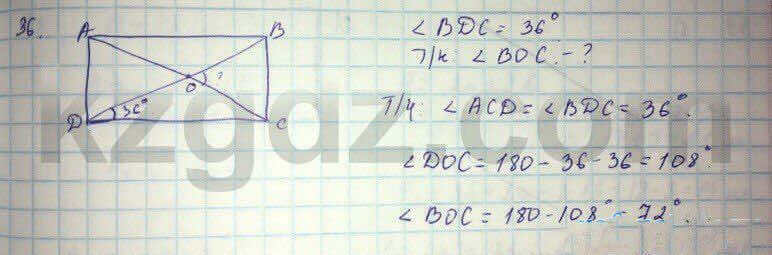 36.
A B
D C
O ?
36°
∠BDC = 36°
Т/к: ∠BOC - ?
Т/ч: ∠ACD = ∠BDC = 36°.
∠DOC = 180 - 36 - 36 = 108°.
∠BOC = 180 - 108° = 72°.
kzgdz.com